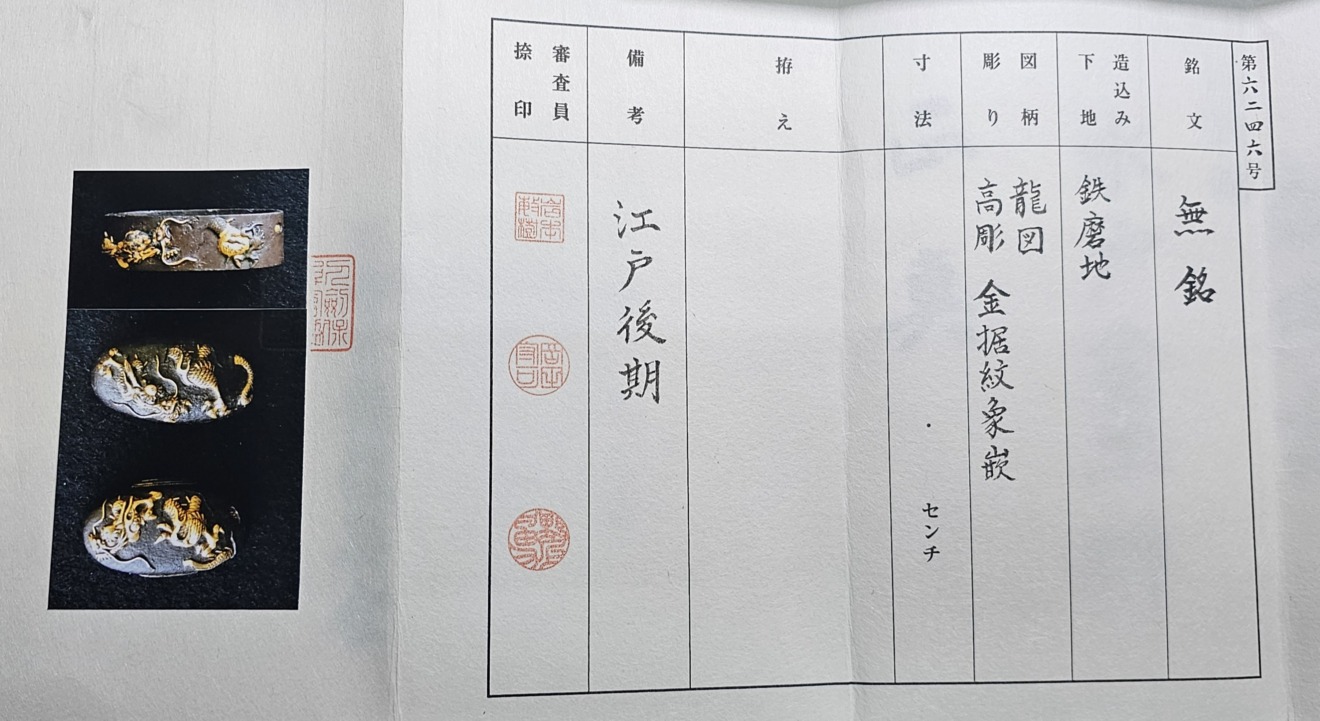 第六二四六号
銘文
無銘
造込み
下地
鉄磨地
図柄
彫り
龍図
高彫 金据紋象嵌
寸法
・ センチ
拵え
備考
江戸後期
審査員
捺印